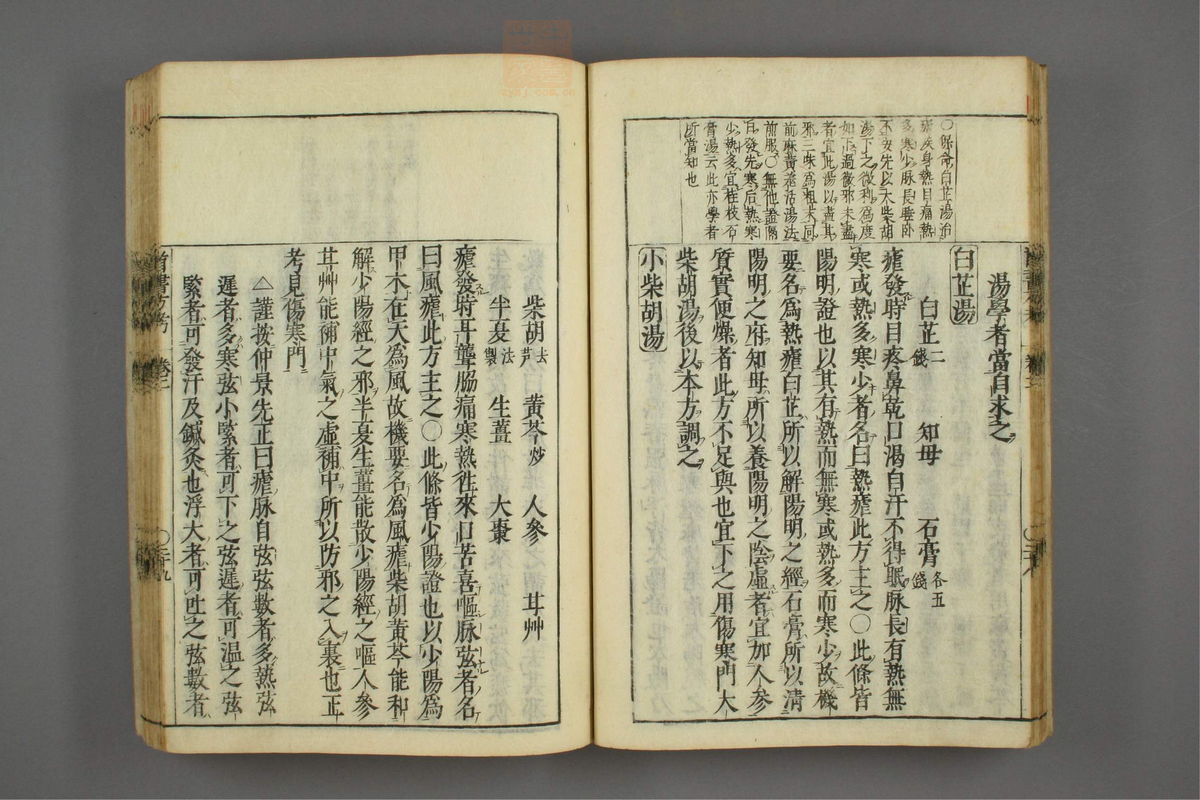 ○保命白芷湯治
瘧疾身熱目痛熱
多寒少脉長睡卧
不安先以大柴胡
湯下之微利爲度
如下過微邪未盡
者宜此湯以盡其
邪三味爲粗末同
前麻黄羌活湯法
前服○無他證隔
日發先寒后熱寒
少熱多宜桂枝石
膏湯云此亦學者
所當知也
湯學者當自求之
白芷湯
白芷二錢 知母 石膏各五錢
瘧發時目疼鼻乾口渴自汗不得眠脉長有熱無
寒或熱多寒少者名曰熱瘧此方主之○此條皆
陽明證也以其有熱而無寒或熱多而寒少故機
要名爲熱瘧白芷所以解陽明之經石膏所以清
陽明之府知母所以養陽明之陰虛者宜加人參
質實便燥者此方不足與也宜下之用傷寒門大
柴胡湯後以本方調之
小柴胡湯
柴胡去芦 黃芩炒 人參 甘艸
半夏法製 生薑 大棗
瘧發時耳聾脇痛寒熱徃來口苦喜嘔脉弦者名
曰風瘧此方主之○此條皆少陽證也以少陽爲
甲木在天爲風故機要名爲風瘧柴胡黃芩能和
解少陽經之邪半夏生薑能散少陽經之嘔人參
甘艸能補中氣之虛補中所以防邪之入裏也正
考見傷寒門
△謹按仲景先正曰瘧脉自弦弦數者多熱弦
遲者多寒弦小緊者可下之弦遲者可温之弦
緊者可發汗及鍼灸也浮大者可吐之弦數者